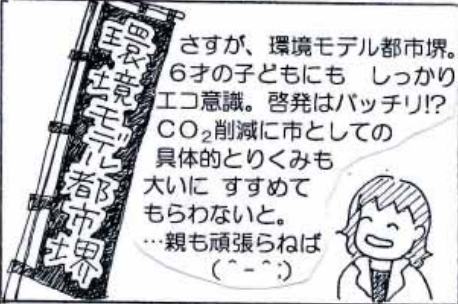 環境モデル都市堺
さすが、環境モデル都市堺。
6才の子どもにも しっかり
エコ意識。啓発はバッチリ!?
CO₂削減に市としての
具体的とりくみも
大いに すすめて
もらわないと。
…親も頑張らねば
(^-^;)